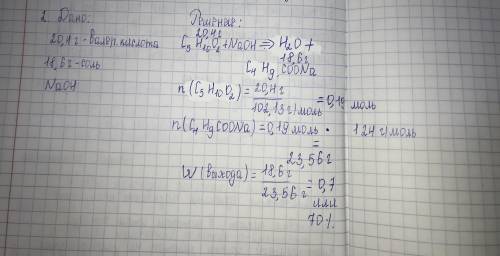 2. Дано:
20,4г - валер. кислота
18,6г - соль
NaOH
Решение:
20,4г
C5 H10O2 + NaOH ⇒ H2O +
18,6г
C4 H9 COONa
n(C5H10O2) = 20,4г / 102,13 г/моль = 0,19 моль
n(C4H9COONa) = 0,19 моль · 124 г/моль
=
23,56г
W(выхода) = 18,6г / 23,56г = 0,7
или
70%.